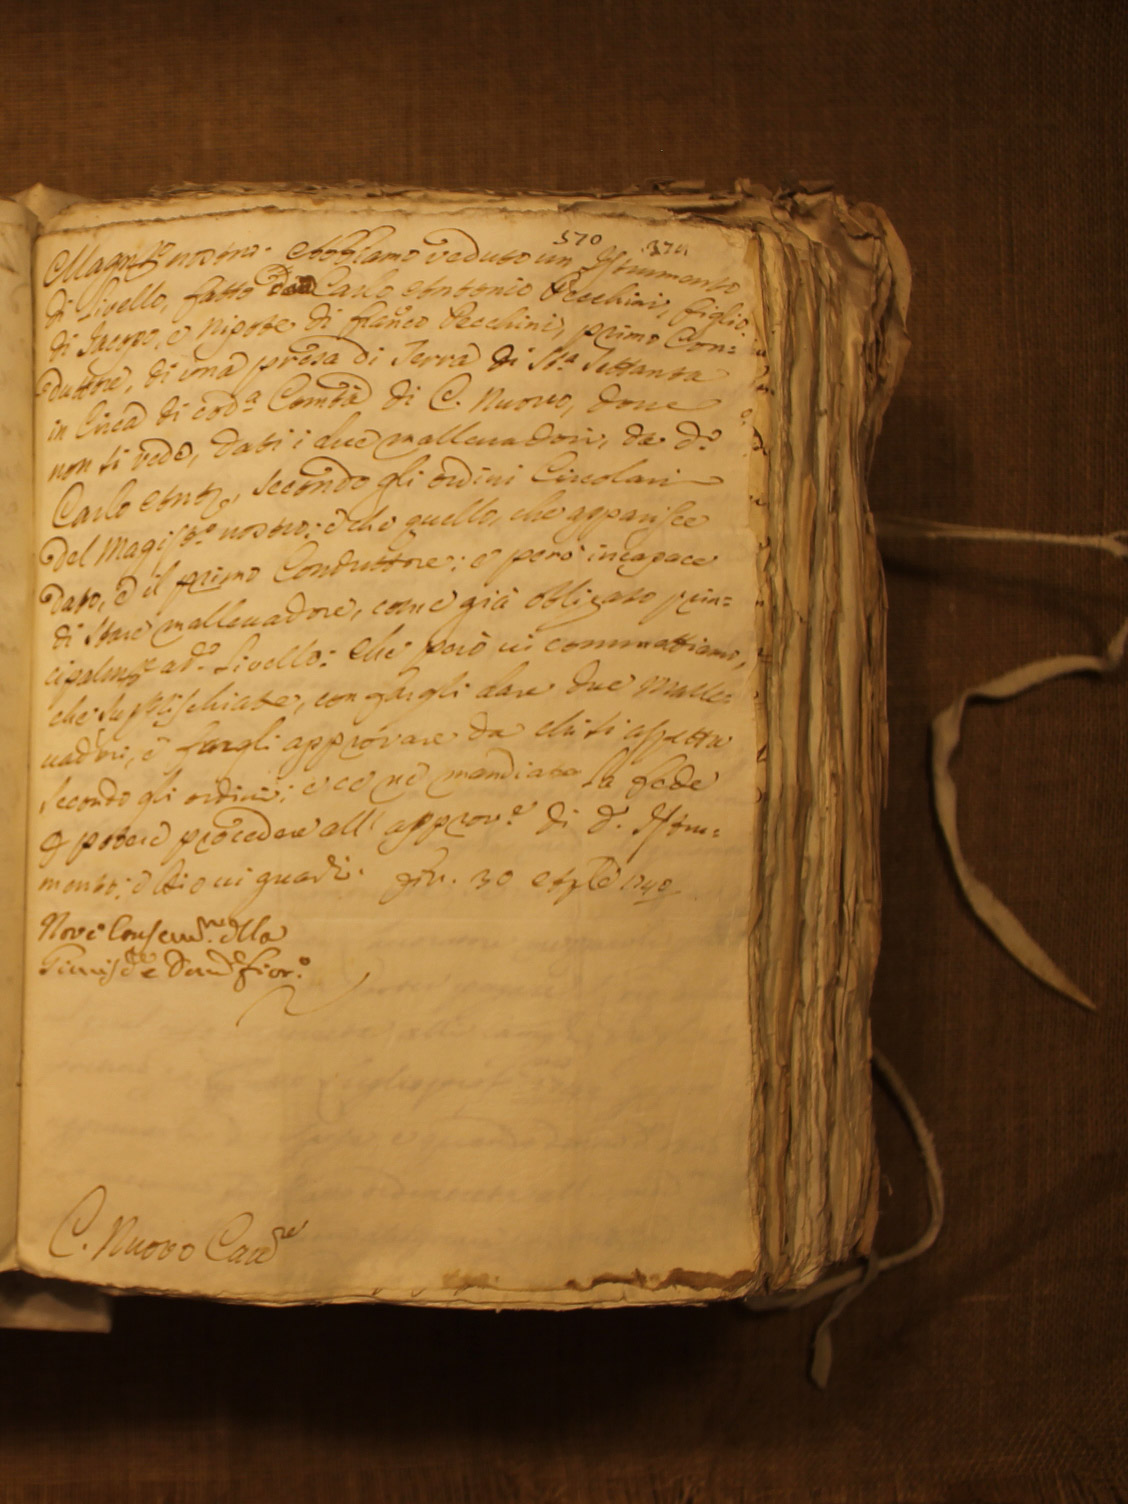 570 371
Magn.ci nostri. Abbiamo veduto un Istrumento
di Livello, fatto da Carlo Antonio Pecchini, figlio
di Jacopo, e Nipote di Fran.co Pecchini, primo Con=
duttore, di una presa di Terra di St.a Settanta
in Circa di cod.a Com.tà di C. Nuovo, dove
non si vede, dati i due mallevadori, da d.o
Carlo Ant.o, secondo gli ordini Circolari
del Magist.o nostro: e che quello, che apparisce
dato, è il primo Conduttore; e però incapace
di stare mallevadore, come già obligato prin=
cipalm.te a d.o Livello: Che però vi commettiamo,
che
dare due Malle=
vadori, e fargli approvare da chi si aspetta
secondo gli ordini; e ce ne mandiate la fede
p potere procedere all' approv.e di d. Istru=
mento; e Dio vi guardi. 30 1740
Nove Conserv.ri della
Giurisd.e e Dom. Fior.o
C. Nuovo Canc.re